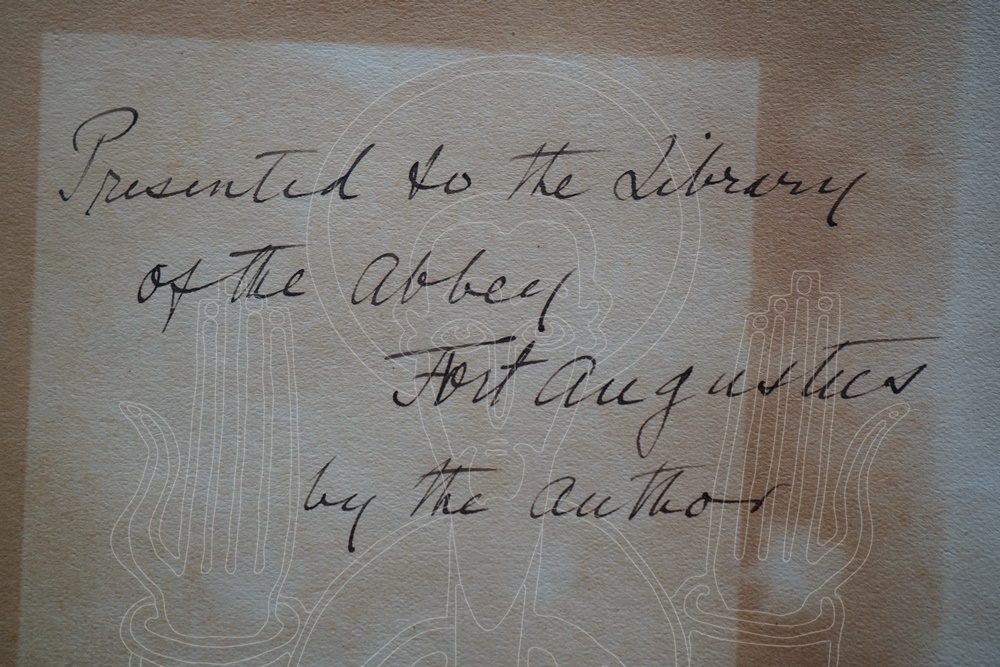 Presented to the Library
of the Abbey
Fort Augustus
by the Author